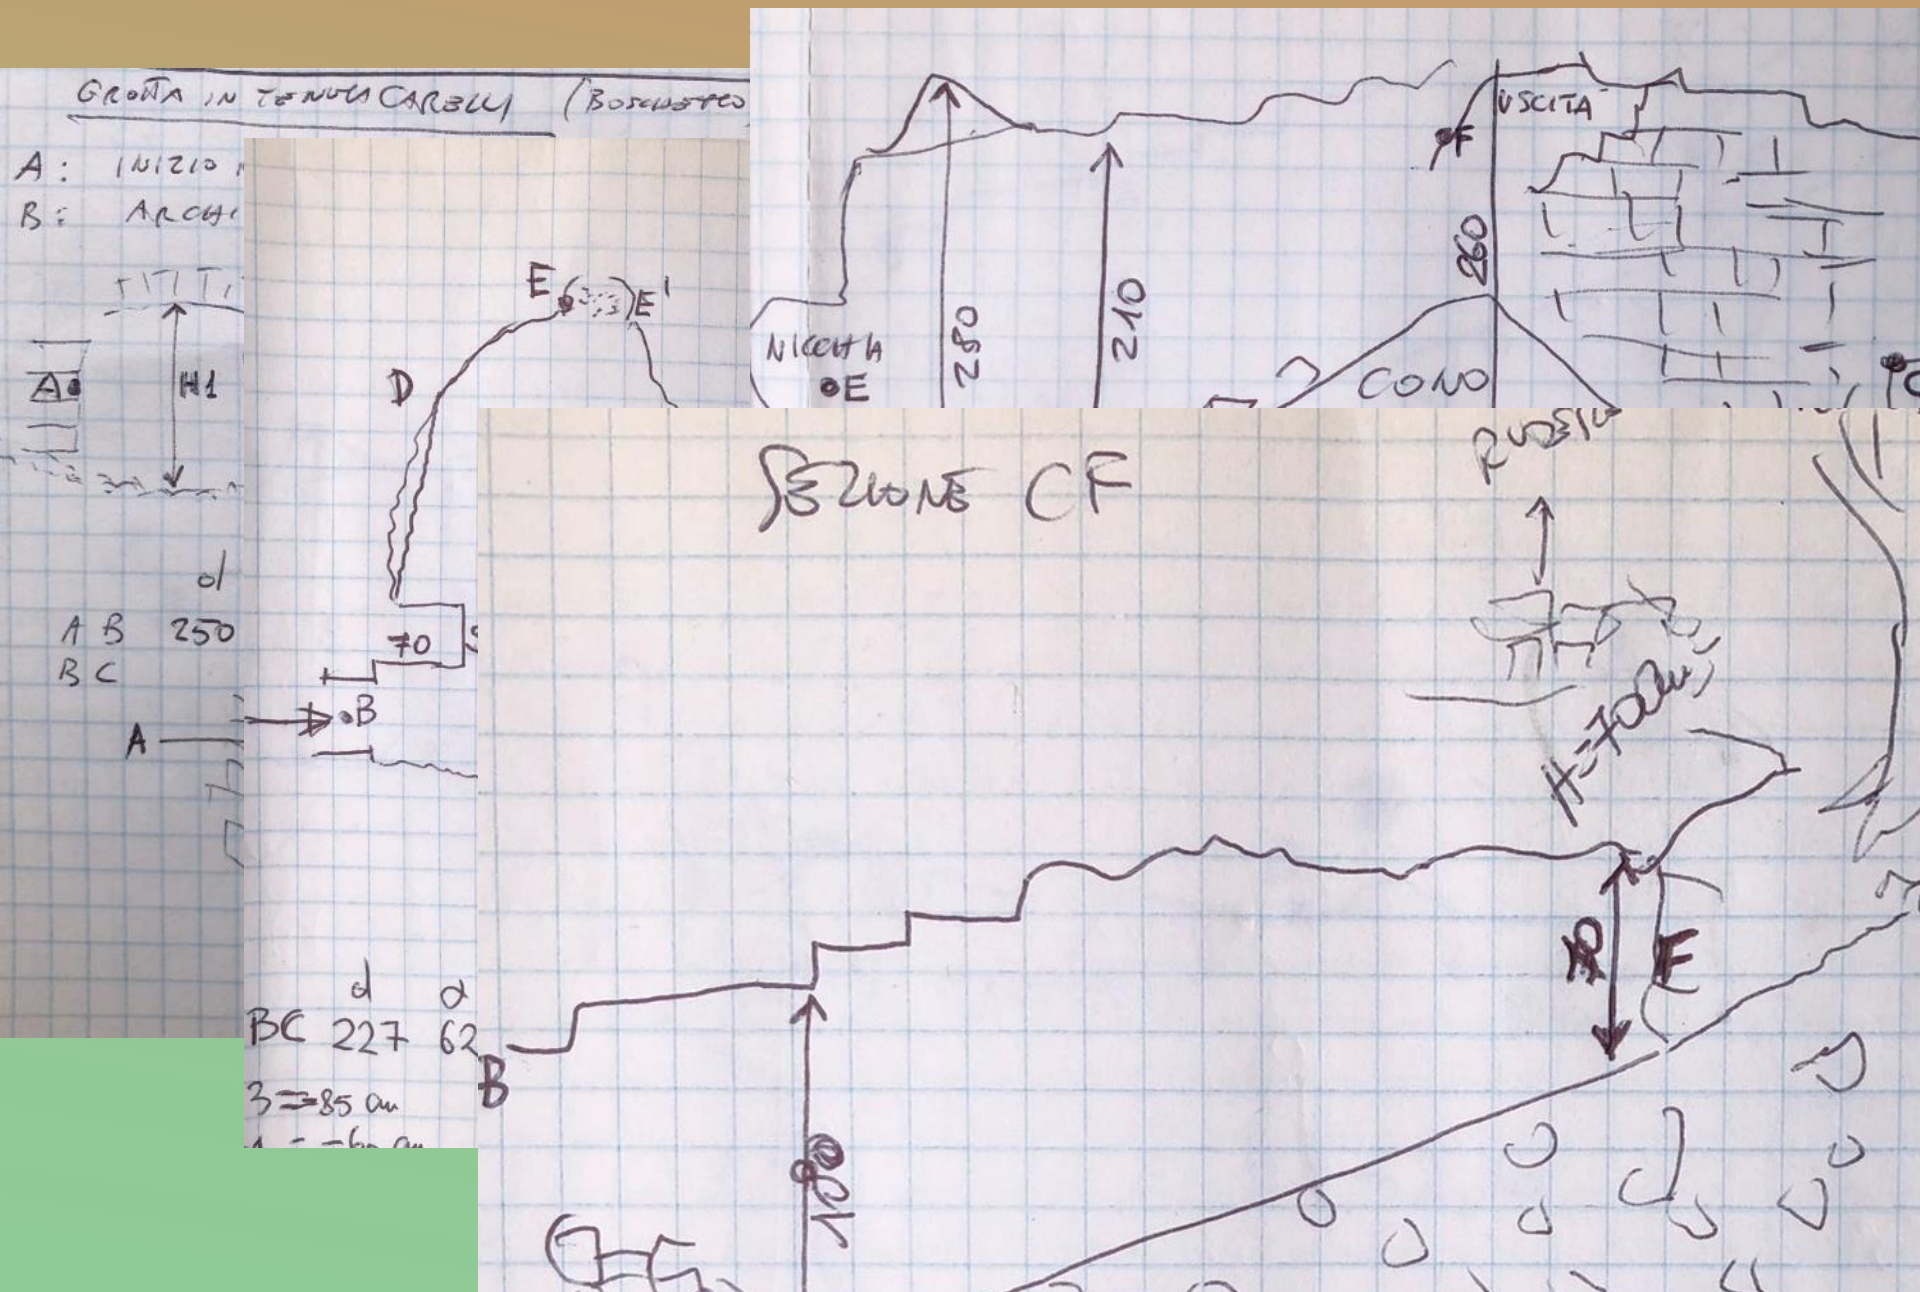 GROTTA IN TENUTA CARELLI (BOSCHETTO
A: INIZIO
B: ARCHI
A
H1
d
AB 250
BC
A
E E'
D
70
B
d α
BC 227 62
3 = -85 cm
USCITA
F
260
280
210
NICCHIA
E
CONO
SEZIONE CF
H=700cm
F
B
180